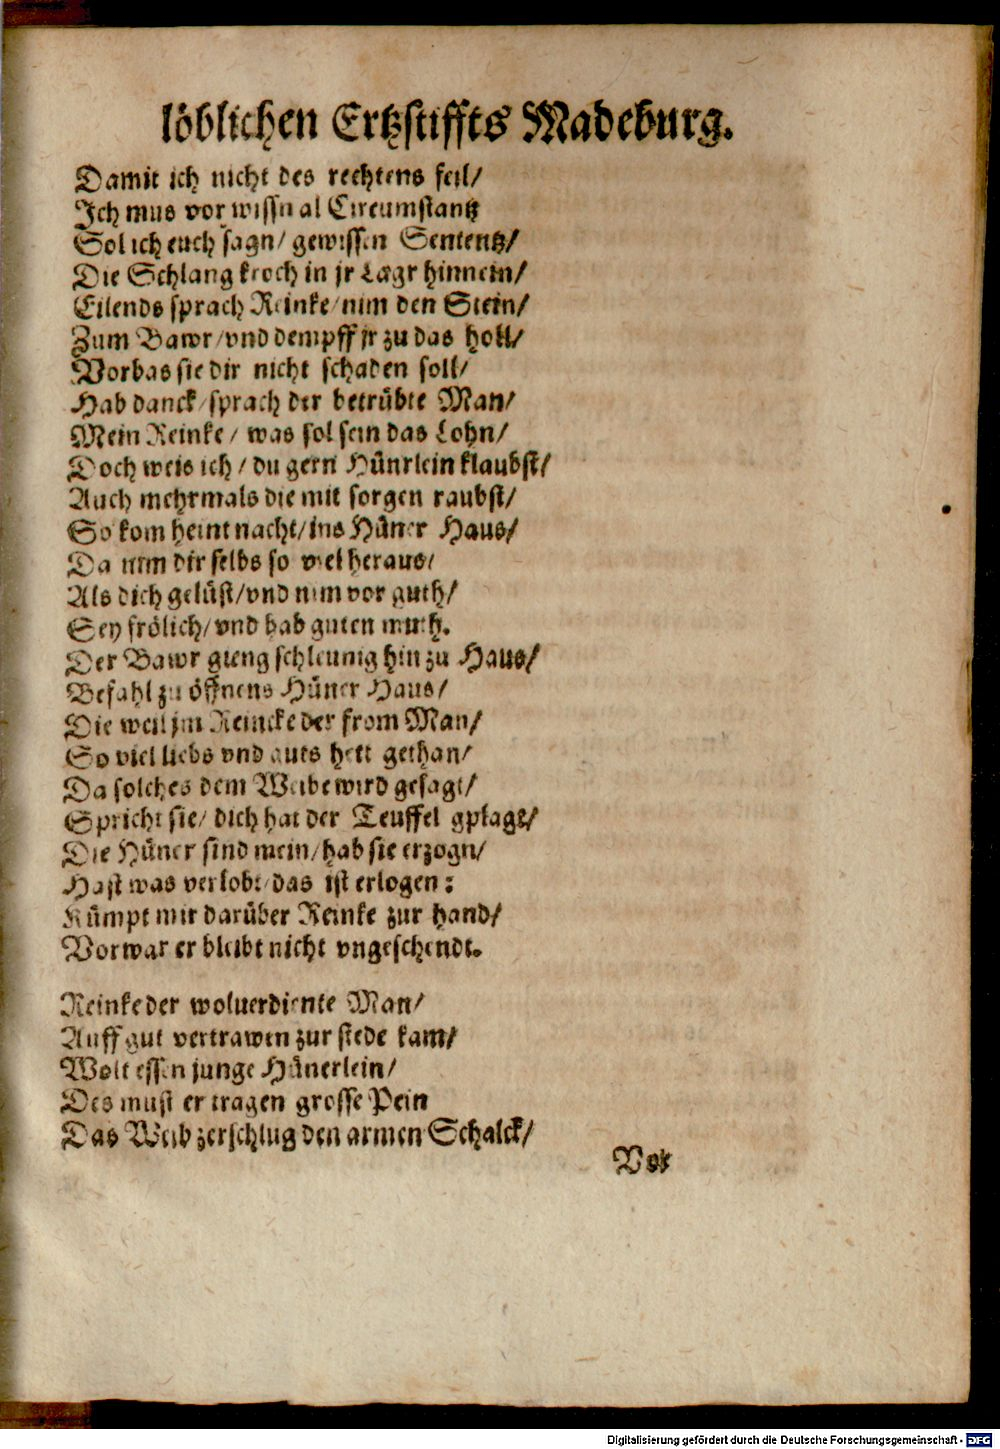 löblichen Ertzstiffts Madeburg.
Damit ich nicht des rechtens feil/
Ich mus vor wissn al Circumstantz
Sol ich euch sagn/ gewissen Sententz/
Die Schlang kroch in jr Lægr hinnein/
Eilends sprach Reinke/ nim den Stein/
Zum Bawr/ vnd dempff jr zu das holl/
Vorbas sie dir nicht schaden soll/
Hab danck/ sprach der betrübte Man/
Mein Reinke/ was sol sein das Lohn/
Doch weis ich/ du gern Hünrlein klaubst/
Auch mehrmals die mit sorgen raubst/
So kom heint nacht/ ins Hüner Haus/
Da nim dir selbs so viel heraus/
Als dich gelüst/ vnd nim vor guth/
Sey frölich/ vnd hab guten muth.
Der Bawr gieng schleunig hin zu Haus/
Befahl zu öffnens Hüner Haus/
Die weil jm Reincke der from Man/
So viel liebs vnd guts hett gethan/
Da solches dem Weibe wird gesagt/
Spricht sie/ dich hat der Teuffel gplagt/
Die Hüner sind mein/ hab sie erzogn/
Hast was verlobt/ das ist erlogen:
Kümpt mir darüber Reinke zur hand/
Vorwar er bleibt nicht vngeschendt.
Reinke der woluerdiente Man/
Auff gut vertrawen zur stede kam/
Wolt essen junge Hünerlein/
Des must er tragen grosse Pein
Das Weib zerschlug den armen Schalck/
Vor
Digitalisierung gefördert durch die Deutsche Forschungsgemeinschaft - DFG